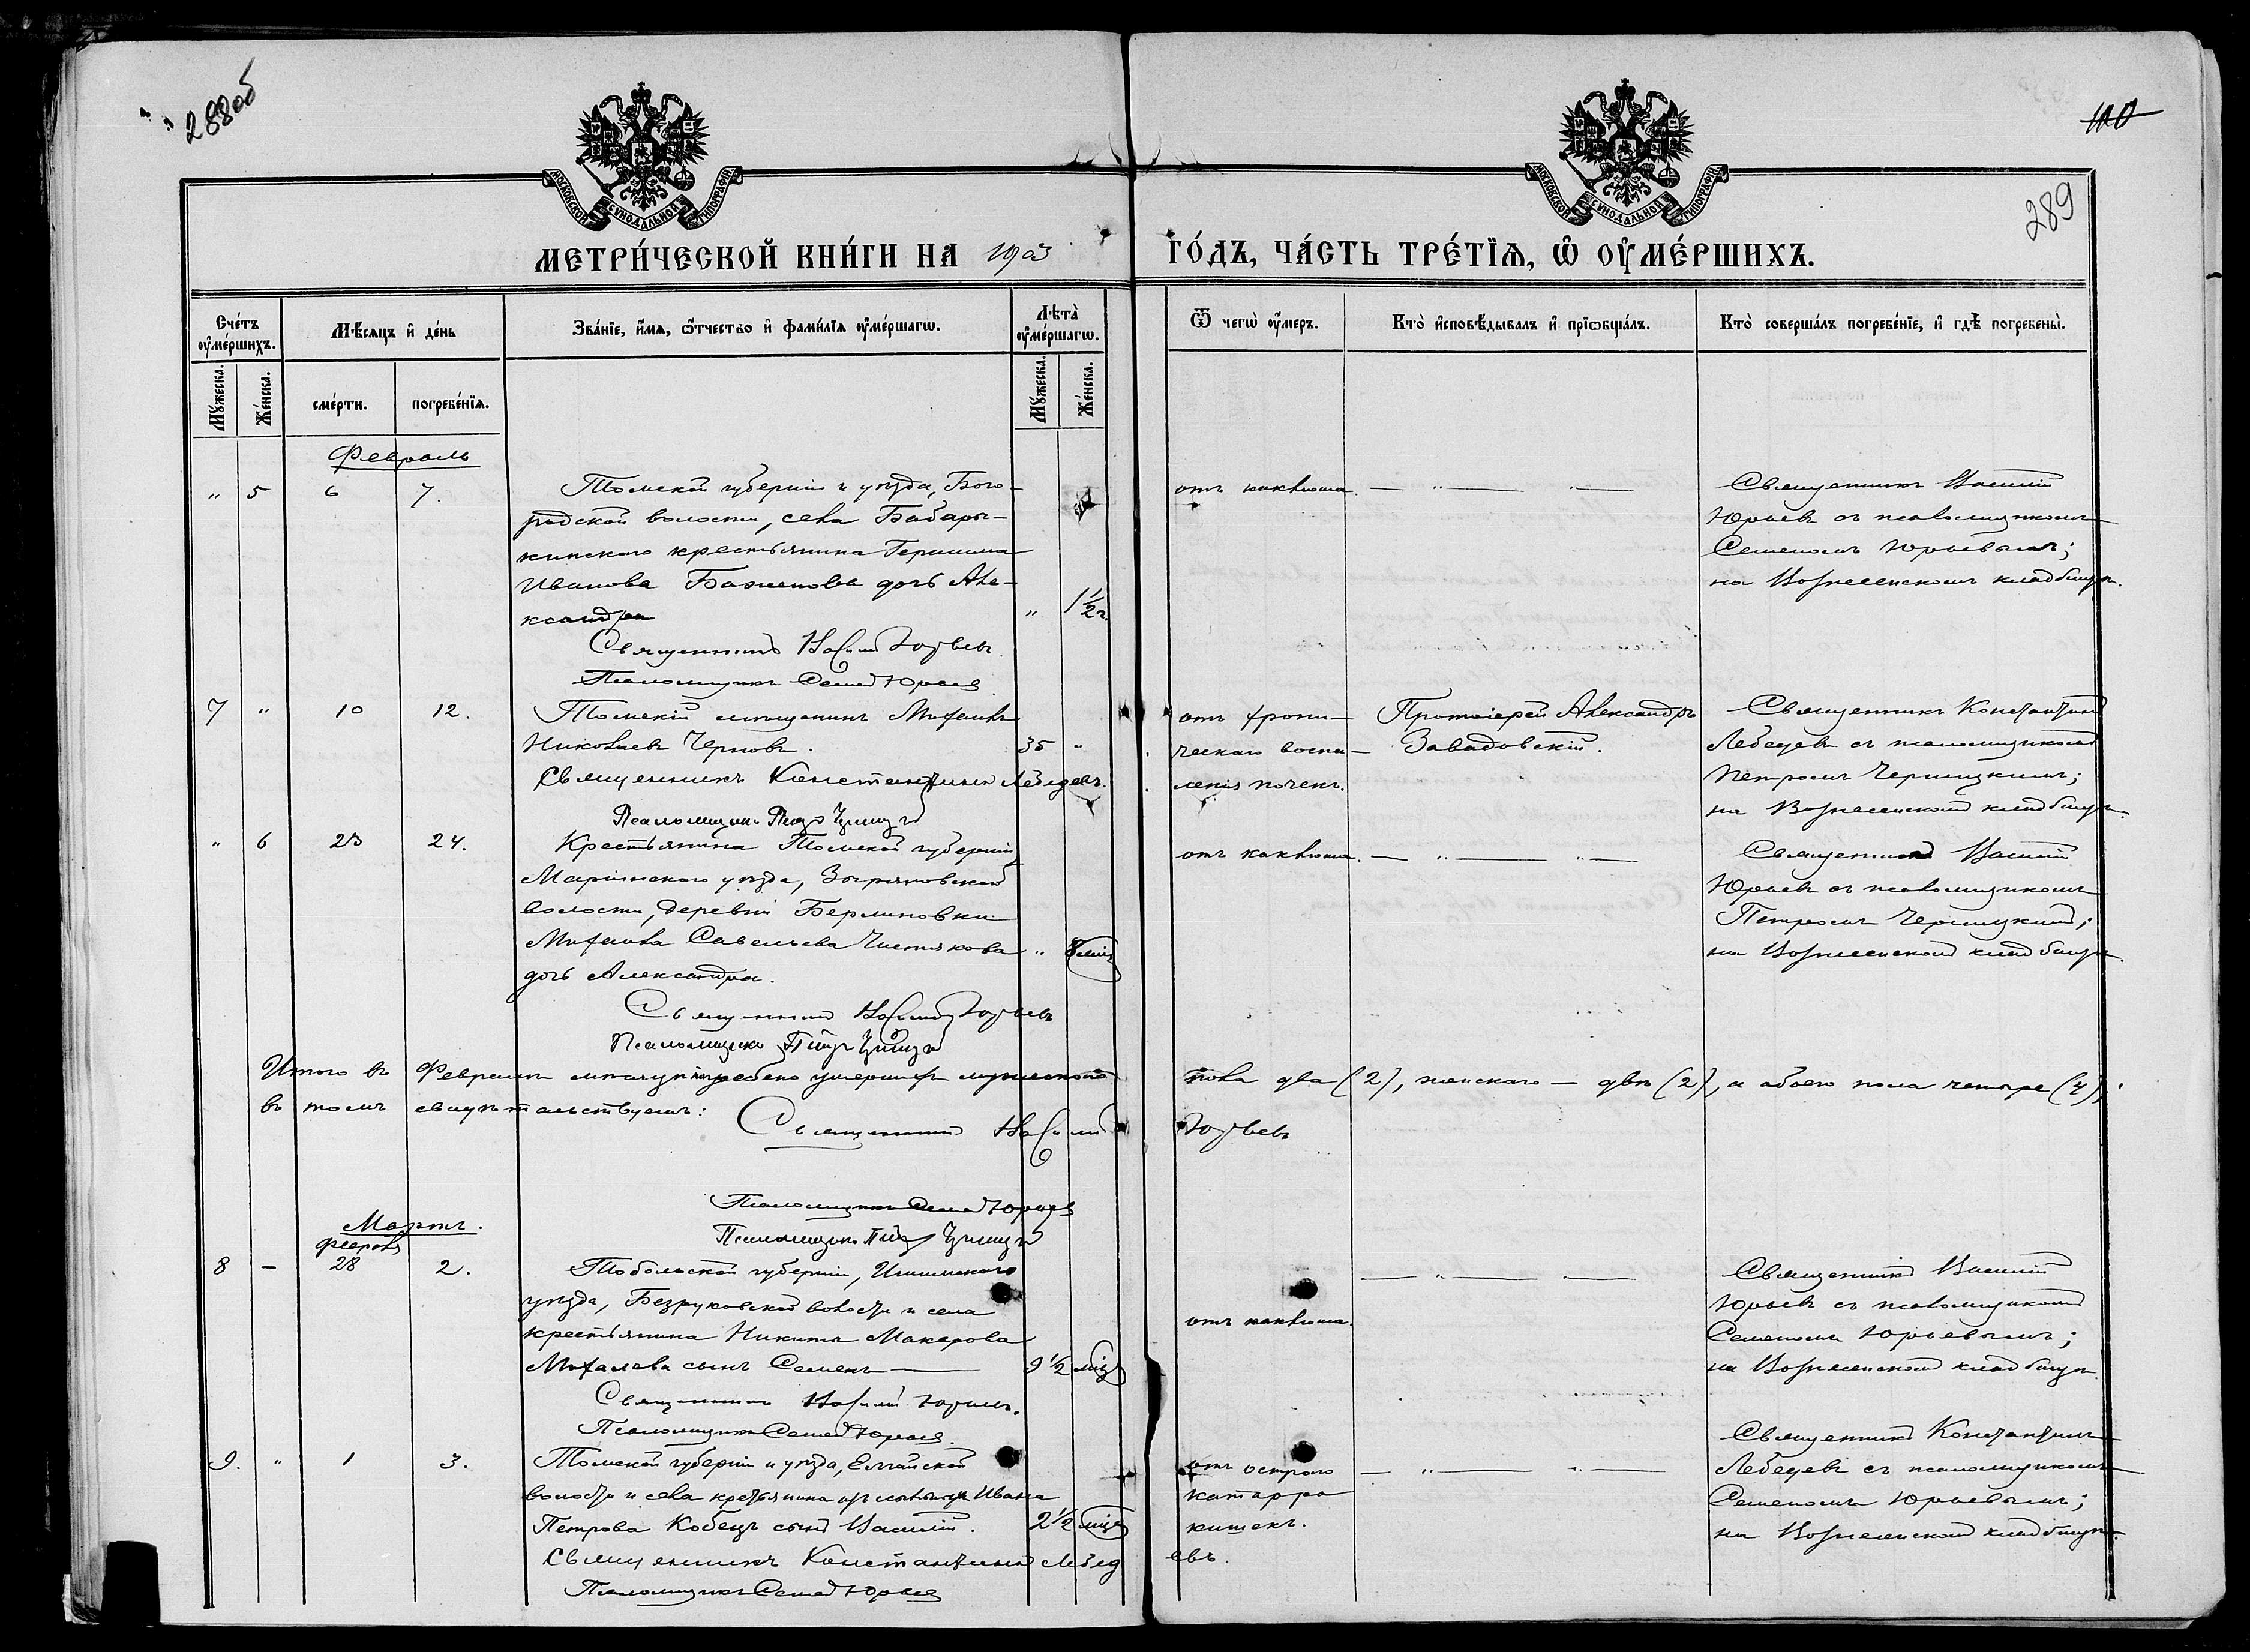 288об
100
289
МОСКОВСКОЙ СѴНОДАЛЬНОЙ ТИПОГРАФІИ
МОСКОВСКОЙ СѴНОДАЛЬНОЙ ТИПОГРАФІИ
МЕТРИ́ЧЕСКОЙ КНИ́ГИ НА 1903 ГО́ДЪ, ЧА́СТЬ ТРЕ́ТЇѦ, Ѽ ОУ҆МЕ́РШИХЪ.
Сче́тъ оу҆ме́ршихъ.
Мѣ́сяцъ и҆ де́нь
Зва́нїе, и҆́мѧ, ѻ҆́тчество и҆ фами́лїѧ оу҆ме́ршагѡ.
Лѣта̀ оу҆ме́ршагѡ.
Ѿ чегѡ̀ оу҆́меръ.
Кто̀ и҆сповѣ́дывалъ и҆ прїѡбща́лъ.
Кто̀ соверша́лъ погребе́нїе, и҆ гдѣ̀ погребены̀.
Мꙋ́жеска.
Же́нска.
сме́рти.
погребе́нїѧ.
Мꙋ́жеска.
Же́нска.
Февраль
" 5 6 7.
Томской губерніи и уѣзда, Бого-
родской волости, села Бабары-
кинскаго крестьянина Герасима
Иванова Баженова дочь Але-
ксандра " 1 1/2 г.
Священникъ Василій Юрьевъ
Псаломщикъ Семен Юрьев
отъ коклюша. — " — " —
Священникъ Василій
Юрьевъ съ псаломщикомъ
Семеномъ Юрьевымъ;
на Вознесенскомъ кладбищѣ.
7 " 10 12.
Томскій мѣщанинъ Михаилъ
Николаевъ Черновъ. 35 "
Священникъ Константинъ Лебедевъ.
Псаломщик Петр
отъ хрони-
ческаго воспа-
ленія почекъ.
Протоіерей Александръ
Завадовскій.
Священникъ Константинъ
Лебедевъ съ псаломщикомъ
Петромъ
на Вознесенскомъ кладбищѣ.
" 6 23 24.
Крестьянина Томской губерніи,
Маріинскаго уѣзда, Зыряновской
волости, деревни Берлиновки
Михаила Савельева Чистякова " 8 мѣс
дочь Александра.
Священникъ Василій Юрьевъ
Псаломщикъ Петр
отъ коклюша. — " — " —
Священникъ Василій
Юрьевъ съ псаломщикомъ
Петромъ
на Вознесенскомъ кладбищѣ.
Итого въ Февралѣ мѣсяцѣ погребено умершихъ мужескаго пола два (2), женскаго — двѣ (2), а обоего пола четыре (4);
въ томъ свидѣтельствуемъ:
Священникъ Василій Юрьевъ
Псаломщикъ Семен Юрьев
Псаломщик Петр
Мартъ.
Февраля
8 — 28 2.
Тобольской губерніи, Ишимскаго
уѣзда, Безруковской волости и села
крестьянина Никиты Макарова
Михалева сынъ Семенъ — 9 1/2 мѣс
Священникъ Василій Юрьевъ.
Псаломщикъ Семен Юрьев.
отъ коклюша.
— " — " —
Священникъ Василій
Юрьевъ съ псаломщикомъ
Семеномъ Юрьевымъ;
на Вознесенскомъ кладбищѣ.
9. " 1 3.
Томской губерніи и уѣзда, Елгайской
волости и села крестьянина изъ Ивана
Петрова Кобецъ сынъ Василій. 2 1/2 мѣс
Священникъ Константинъ Лебедевъ.
Псаломщикъ Семен Юрьев
отъ остраго
катарра
кишекъ.
— " — " —
Священникъ Константинъ
Лебедевъ съ псаломщикомъ
Семеномъ Юрьевымъ;
на Вознесенскомъ кладбищѣ.